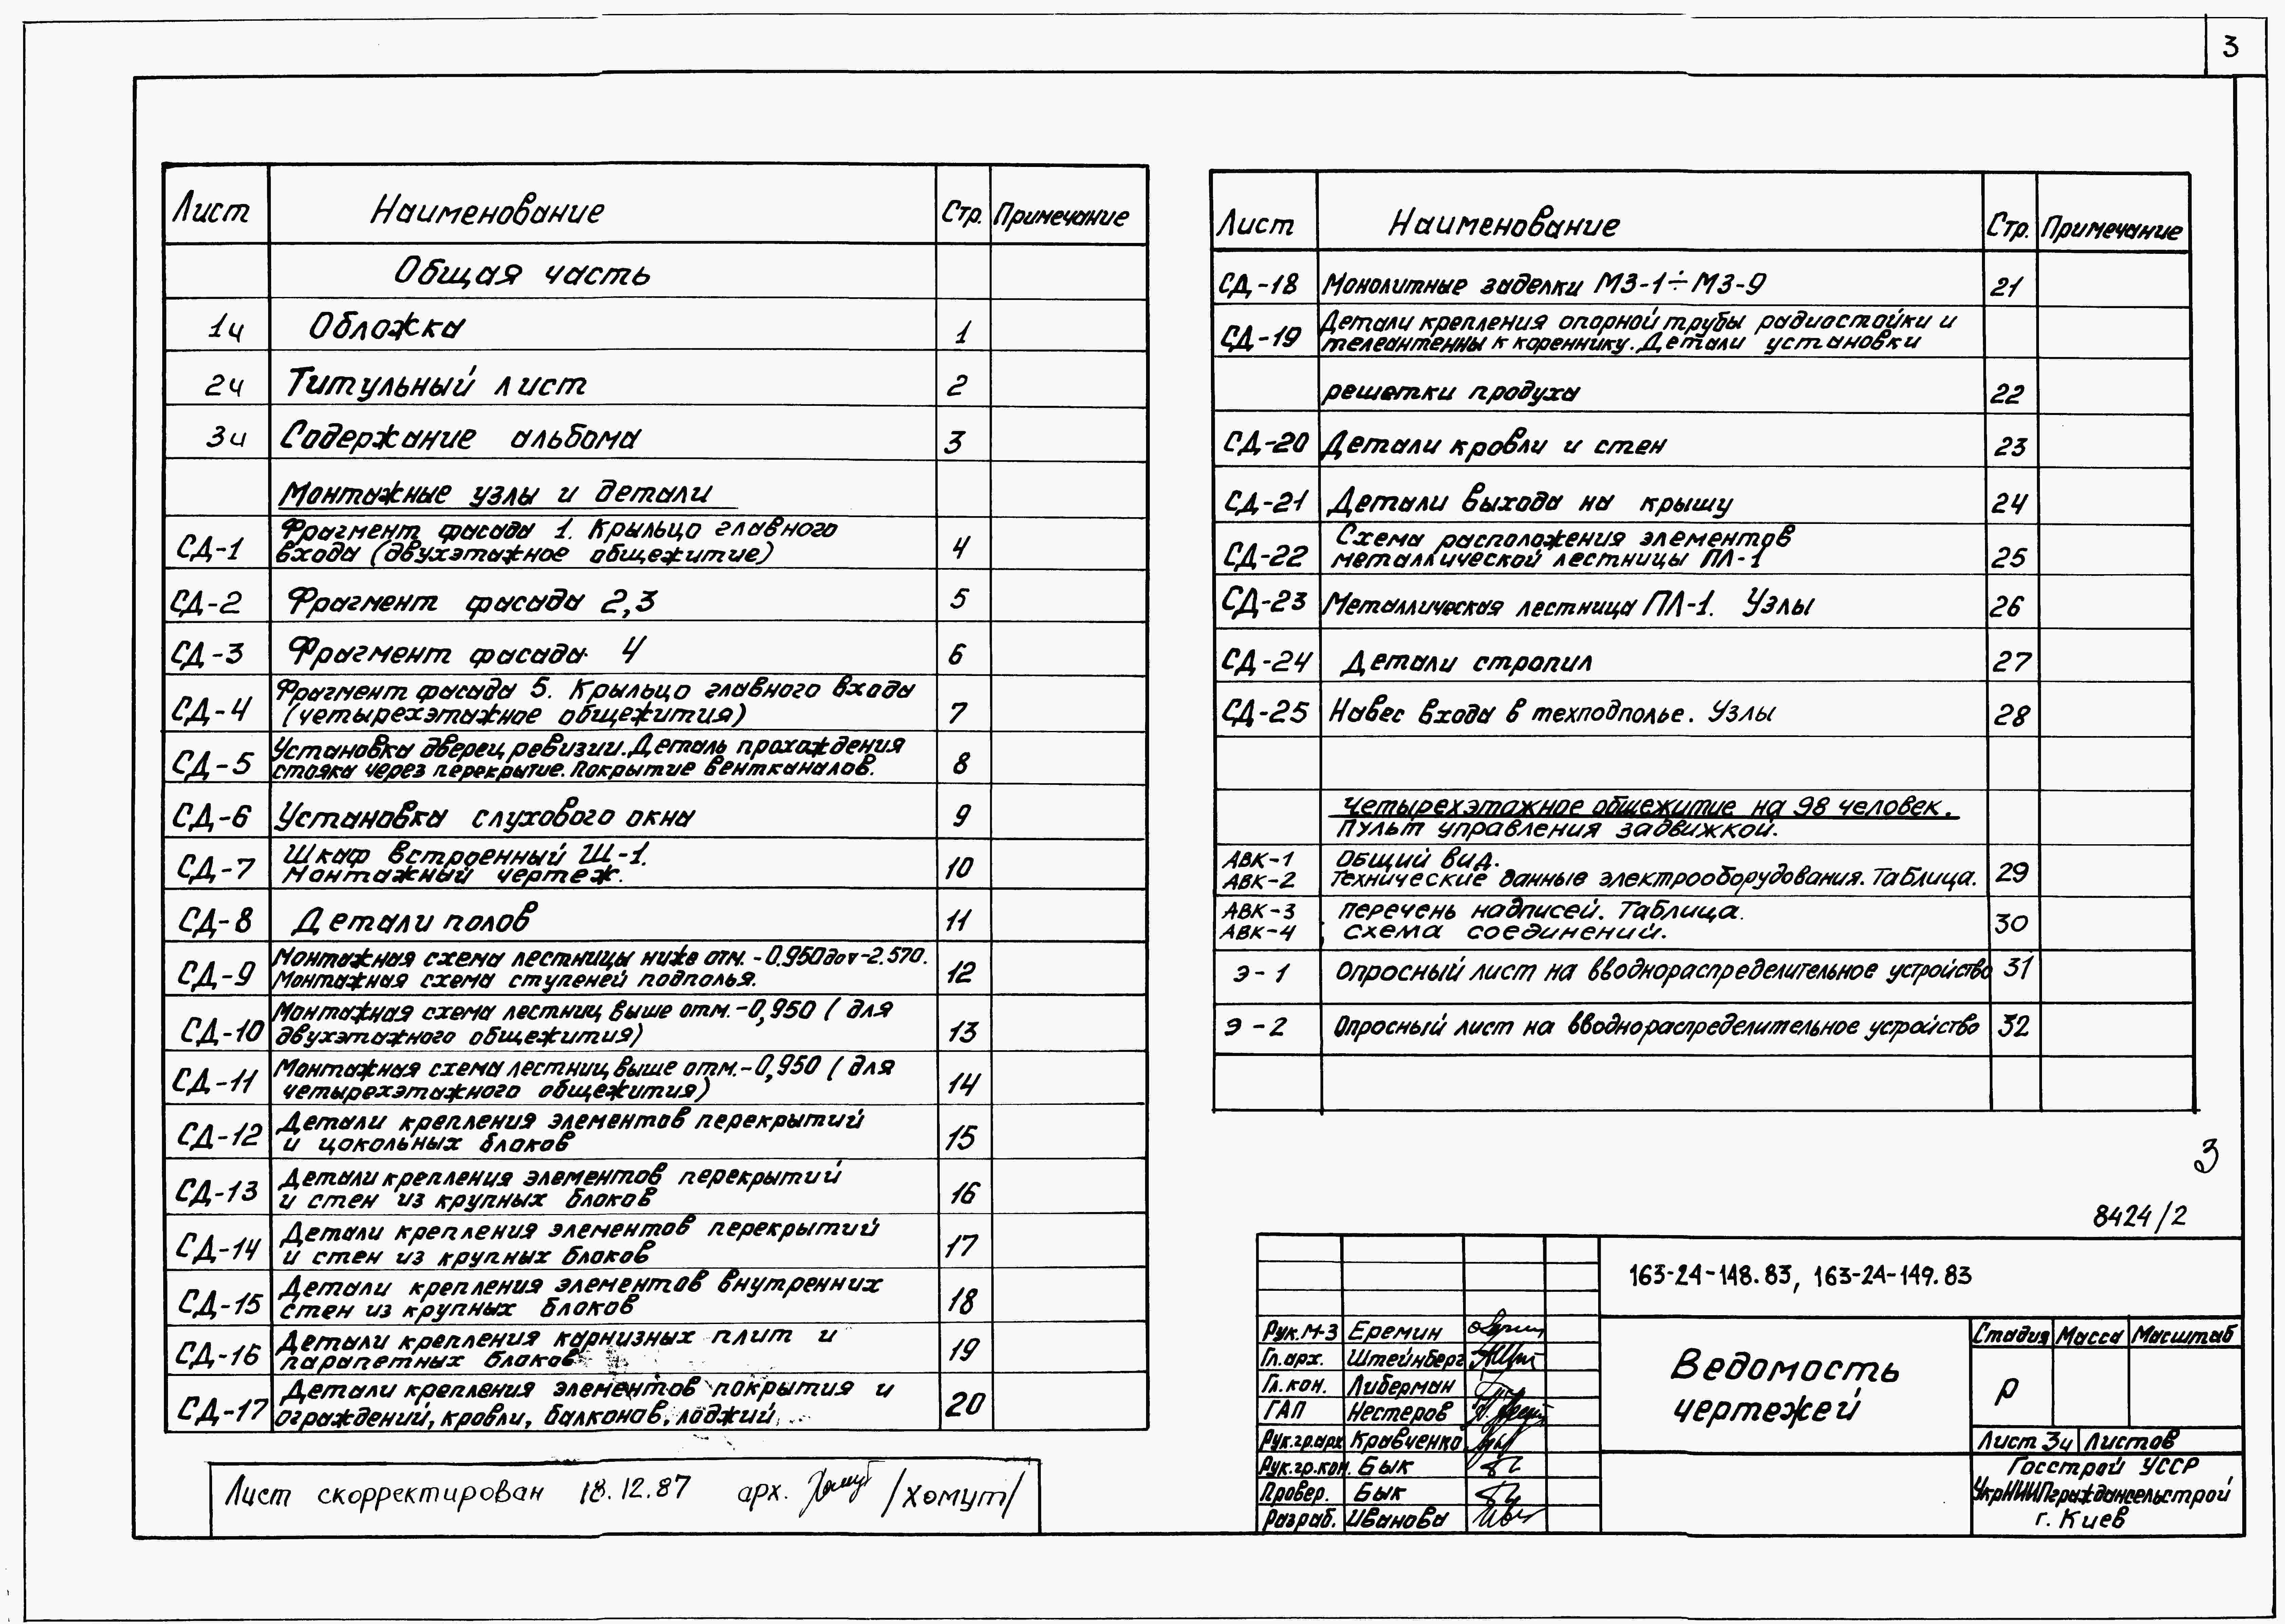 3
Лист Наименование Стр. Примечание
Общая часть
1ч Обложка 1
2ч Титульный лист 2
3ч Содержание альбома 3
Монтажные узлы и детали
СД-1 Фрагмент фасада 1. Крыльцо главного
входа (двухэтажное общежитие) 4
СД-2 Фрагмент фасада 2,3 5
СД-3 Фрагмент фасада 4 6
СД-4 Фрагмент фасада 5. Крыльцо главного входа
(четырехэтажное общежития) 7
СД-5 Установка дверец ревизии. Деталь прохождения
стояка через перекрытие. Покрытие вентканалов. 8
СД-6 Установка слухового окна 9
СД-7 Шкаф встроенный Ш-1.
Монтажный чертеж. 10
СД-8 Детали полов 11
СД-9 Монтажная схема лестницы ниже отм. -0.950 до -2.570.
Монтажная схема ступеней подполья. 12
СД-10 Монтажная схема лестниц выше отм. -0,950 (для
двухэтажного общежития) 13
СД-11 Монтажная схема лестниц выше отм. -0,950 (для
четырехэтажного общежития) 14
СД-12 Детали крепления элементов перекрытий
и цокольных блоков 15
СД-13 Детали крепления элементов перекрытий
и стен из крупных блоков 16
СД-14 Детали крепления элементов перекрытий
и стен из крупных блоков 17
СД-15 Детали крепления элементов внутренних
стен из крупных блоков 18
СД-16 Детали крепления карнизных плит и
парапетных блоков 19
СД-17 Детали крепления элементов покрытия и
ограждений, кровли, балконов, лоджий 20
Лист скорректирован 18.12.87 арх. Хомут /Хомут/
Лист Наименование Стр. Примечание
СД-18 Монолитные заделки МЗ-1÷МЗ-9 21
СД-19 Детали крепления опорной трубы радиостойки и
телеантенны к кореннику. Детали установки
решетки продуха 22
СД-20 Детали кровли и стен 23
СД-21 Детали выхода на крышу 24
СД-22 Схема расположения элементов
металлической лестницы ПЛ-1 25
СД-23 Металлическая лестница ПЛ-1. Узлы 26
СД-24 Детали стропил 27
СД-25 Навес входа в техподполье. Узлы 28
Четырехэтажное общежитие на 98 человек.
Пульт управления задвижкой.
АВК-1 Общий вид.
АВК-2 Технические данные электрооборудования. Таблица. 29
АВК-3 Перечень надписей. Таблица.
АВК-4 Схема соединений. 30
Э-1 Опросный лист на вводнораспределительное устройство 31
Э-2 Опросный лист на вводнораспределительное устройство 32
3
8424/2
163-24-148.83, 163-24-149.83
Рук. М-3 Еремин
Гл. арх. Штейнберг
Гл. кон. Либерман
ГАП Нестеров
Рук. гр. арх Кравченко
Рук. гр. кон. Бык
Провер. Бык
Разраб. Иванова
Ведомость
чертежей
Стадия Масса Масштаб
Р
Лист 3ч Листов
Госстрой УССР
УкрНИИПграждансельстрой
г. Киев